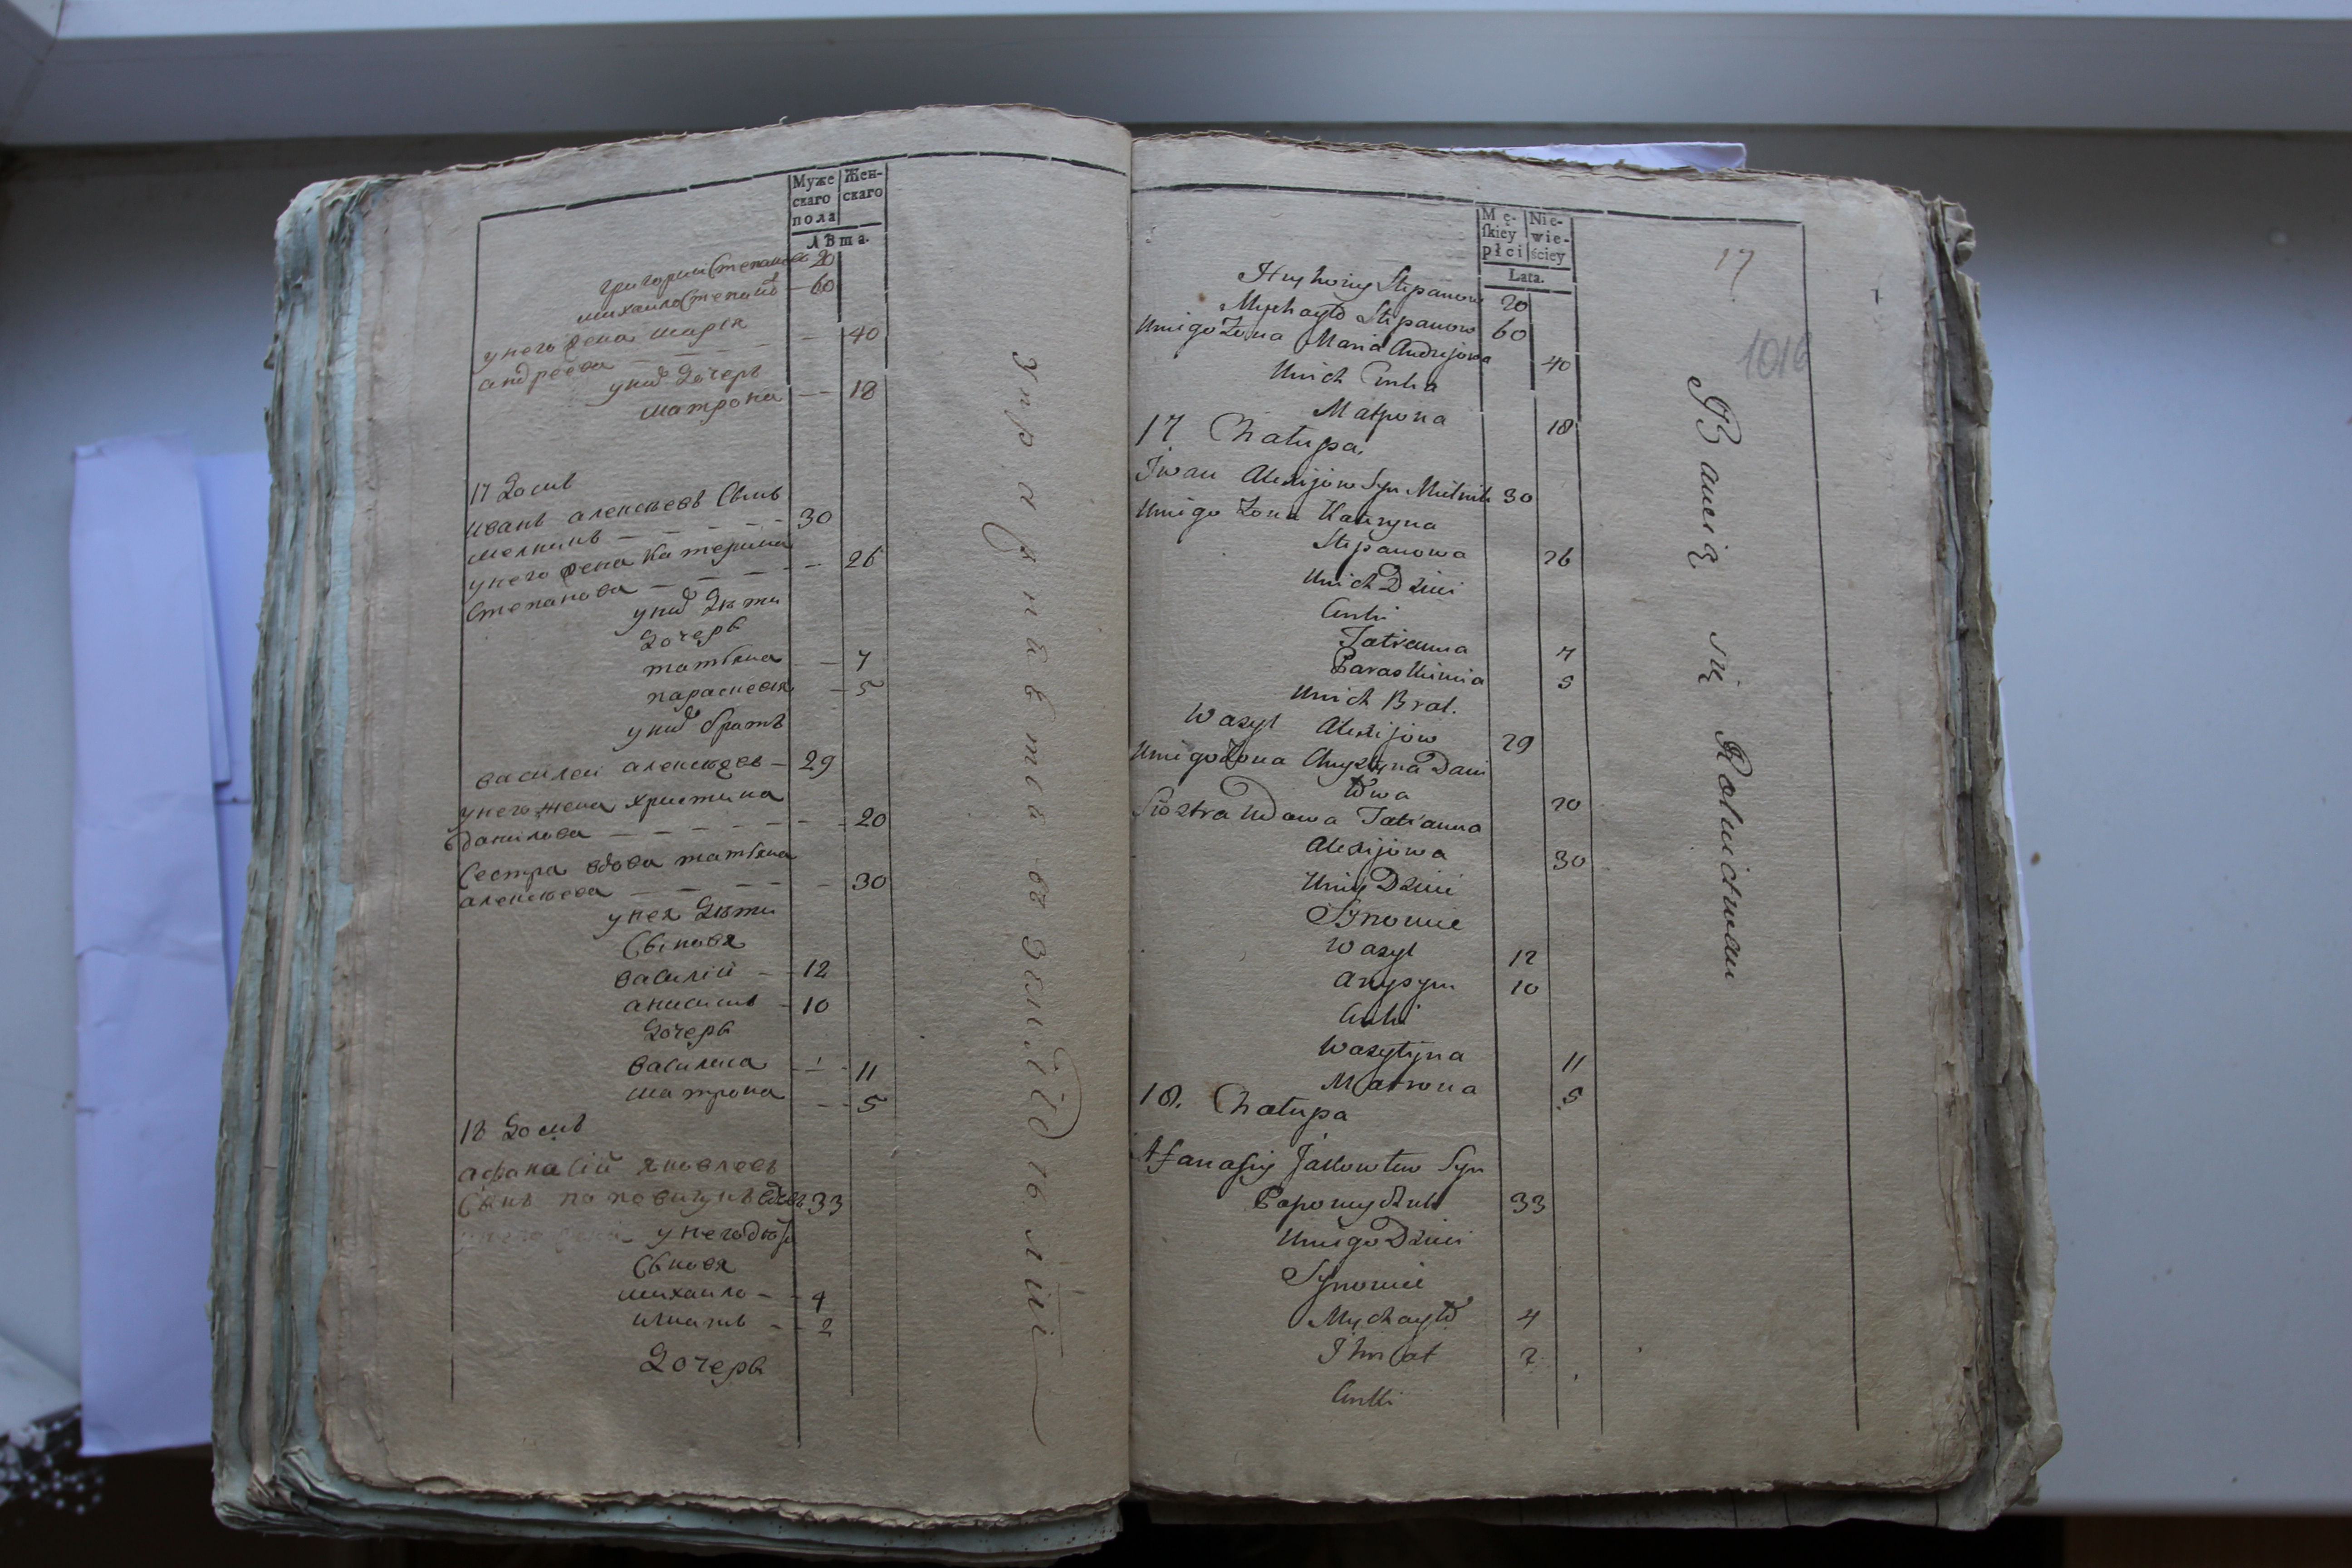 Муже Жен-
скаго скаго
пола
лѣта.
григории Степановъ 20
михаило Степановъ — 60
у него жена марья
андреева — — — — 40
у них дочерь
матрона — — 18
17 Домъ
иванъ алексѣевъ Сынъ
мелникъ — — — — 30
у него жена катерина
Степанова — — — — 26
у них дѣти
Дочерь
татьяна — 7
параскевия — 5
у них братъ
василеи алексѣевъ — 29
у него жена христина
данилова — — — — 20
Сестра вдова татьяна
алексѣева — — — — 30
у нея дѣти
Сыновя
василий — 12
анисимъ — 10
Дочерь
василина — — 11
матрона — — 5
18 Домъ
афанасий яковлевъ
Сынъ 33
у него дѣти
Сыновя
михаило — 4
игнатъ — 2
Дочерь
Mę- Nie-
skiey wie-
płci ściey
Lata.
17
1016
Hryhoriy Stepanow 20
Mychayło Stepanow 60
Uniego Żona Maria Andrejowa 40
Unich Curka
Matrona 18
17 Chałupa
Iwan Alexijow Syn Mielnik 30
Uniego Żona Kateryna
Stepanowa 26
Unich Dzieci
Curki
Tatianna 7
Paraskiewia 5
Unich Brat.
Wasyl Alexijow 29
Uniego Żona Chrystyna Dani
łowa 20
Siostra Wdowa Tatianna
Alexijowa 30
Uniey Dzieci
Synowie
Wasyl 12
Anysym 10
Curki
Wasylyna 11
Matrona 5
18. Chałupa
Afanasiy Jakowlew Syn
33
Uniego Dzieci
Synowie
Mychayło 4
Ihnat 2
Curki
Bawią się Rolnictwem